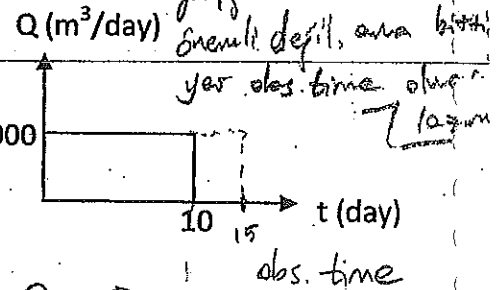 Q (m³/day)
önemli değil, ama bitti
yer obs. time
000
10
15
t (day)
obs. time